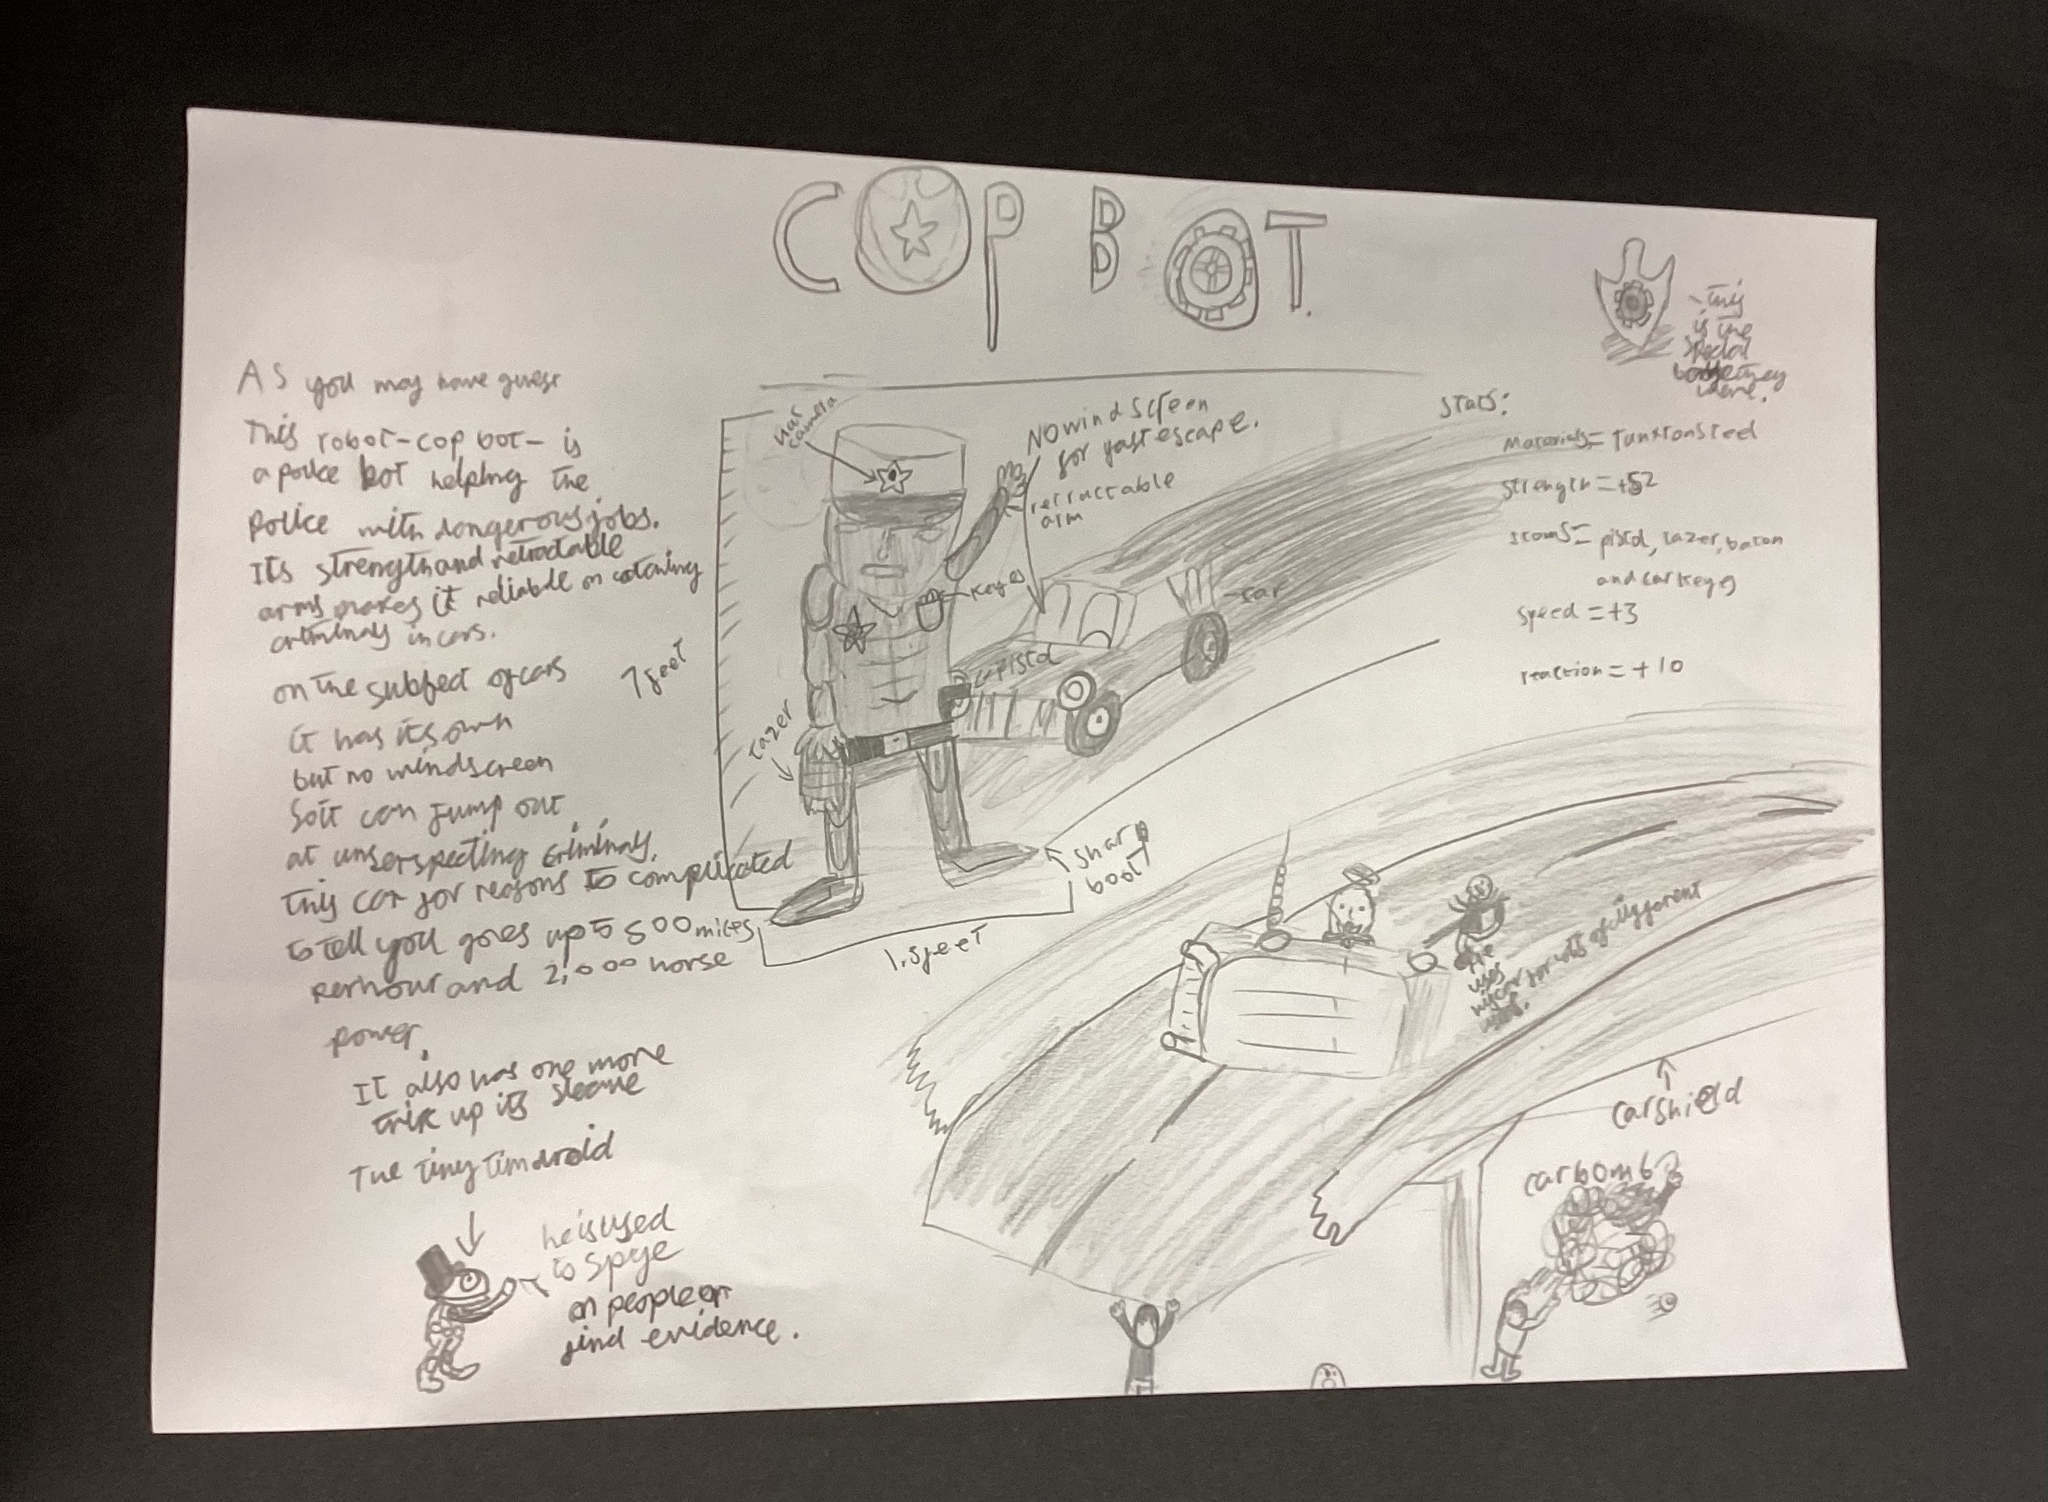 COP BOT.
- This
is the
special
badge they
wear.
As you may have guest
This robot-cop bot- is
a police bot helping the
Police with dangerous jobs.
Its strength and retractable
arms makes it reliable on catching
criminals in cars.
on the subject of cars
it has its own
but no windscreen
So it can jump out
at unserspecting criminals.
this car for reasons to complicated
to tell you goes up to 500 miles
per hour and 2,000 horse
power.
It also has one more
trik up its sleave
The tiny tim droid
he is used
to spye
on people or
find evidence.
hat
camera
NO wind screen
for fast escape.
retractable
arm
keys
car
pistol
tazer
7 feet
1.5 feet
sharp
boot
Stats:
Materials = tunxtonsteel
strength = +52
= pistol, tazer, baton
and car keys
speed = +3
reaction = +10
He
uses
his car for lots of different
carshield
carbomb